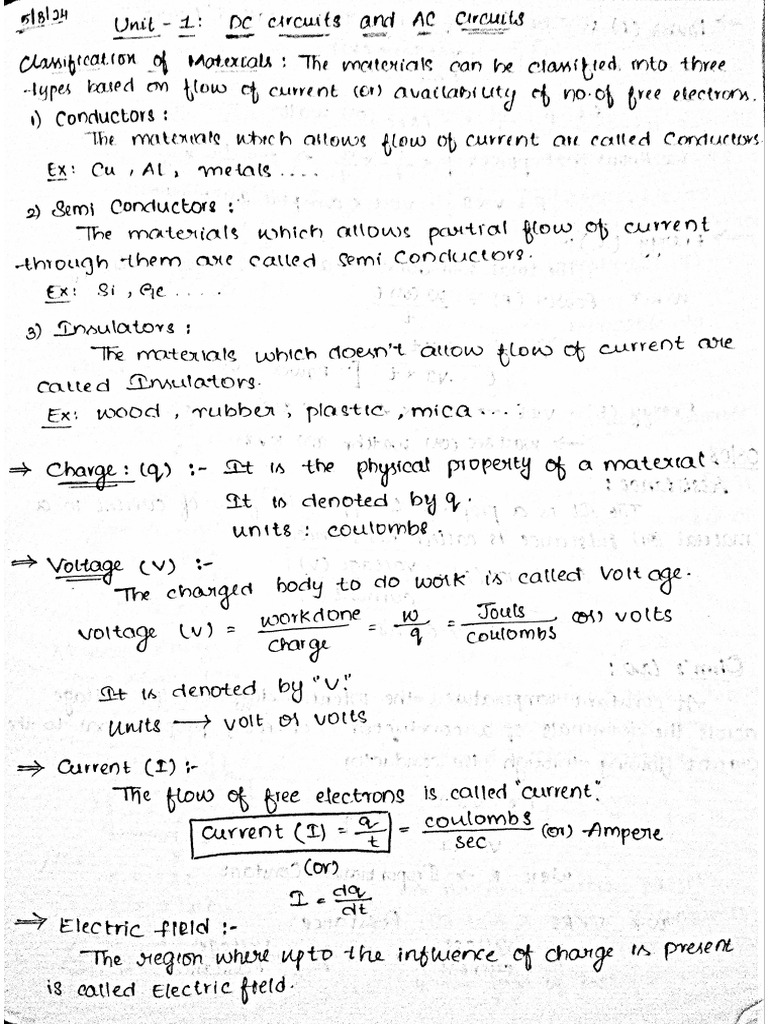 5/8/24
Unit - 1: DC circuits and AC Circuits
Classification of Materials: The materials can be classified into three
types based on flow of current (or) availability of no. of free electrons.
1) Conductors:
The materials which allows flow of current are called Conductors.
Ex: Cu, Al, metals....
2) Semi Conductors:
The materials which allows partial flow of current
through them are called Semi Conductors.
Ex: Si, Ge....
3) Insulators:
The materials which doesn't allow flow of current are
called Insulators.
Ex: wood, rubber, plastic, mica....
⇒ Charge: (q) :- It is the physical property of a material.
It is denoted by q.
units: coulombs.
⇒ Voltage (V) :-
The charged body to do work is called Voltage.
Voltage (V) = workdone/charge = w/q = Jouls/coulombs (or) volts
It is denoted by "V".
Units → volt or volts
⇒ Current (I) :-
The flow of free electrons is called "current".
Current (I) = q/t = coulombs/sec (or) Ampere
(or)
I = dq/dt
⇒ Electric field :-
The region where upto the influence of charge is present
is called Electric field.